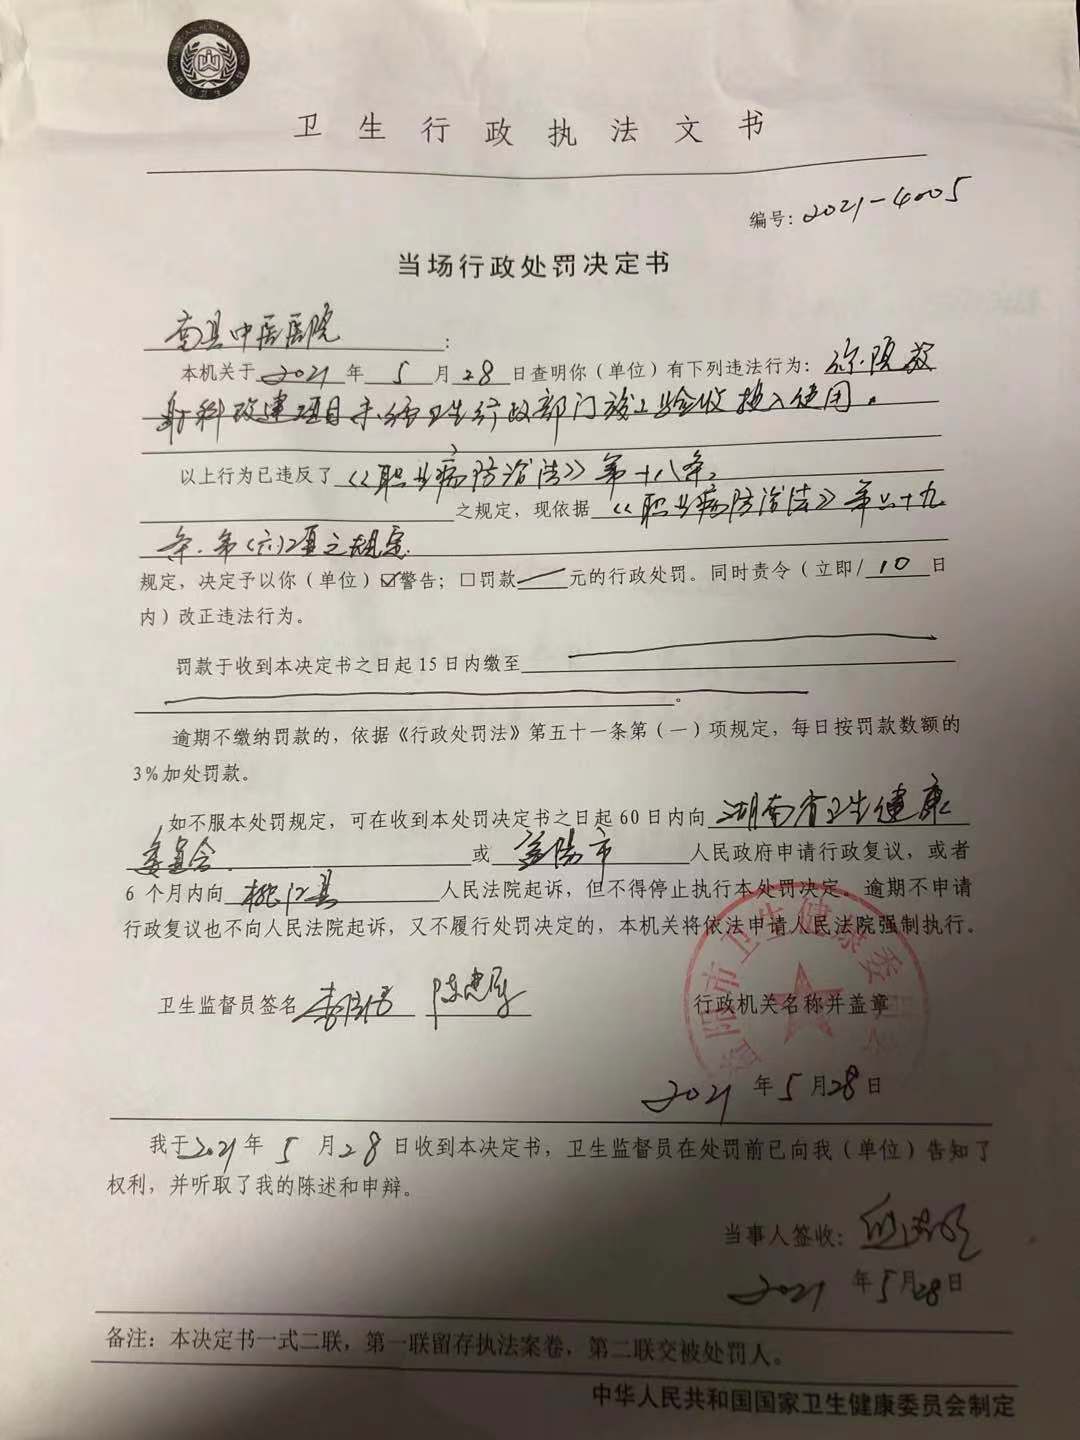 卫生行政执法文书
编号：2021-4005
当场行政处罚决定书
南县中医医院：
本机关于2021年5月28日查明你（单位）有下列违法行为：你院放
射科改建项目未经卫生行政部门竣工验收投入使用。
以上行为已违反了《职业病防治法》第十八条
之规定，现依据《职业病防治法》第六十九
条.第(六)项之规定
规定，决定予以你（单位）☑警告；□罚款 元的行政处罚。同时责令（立即/10日
内）改正违法行为。
罚款于收到本决定书之日起15日内缴至
。
逾期不缴纳罚款的，依据《行政处罚法》第五十一条第（一）项规定，每日按罚款数额的
3%加处罚款。
如不服本处罚规定，可在收到本处罚决定书之日起60日内向湖南省卫生健康
委员会或益阳市人民政府申请行政复议，或者
6个月内向桃江县人民法院起诉，但不得停止执行本处罚决定。逾期不申请
行政复议也不向人民法院起诉，又不履行处罚决定的，本机关将依法申请人民法院强制执行。
益阳市卫生健康委员会
卫生监督员签名 行政机关名称并盖章
2021年5月28日
我于2021年5月28日收到本决定书，卫生监督员在处罚前已向我（单位）告知了
权利，并听取了我的陈述和申辩。
当事人签收：
2021年5月28日
备注：本决定书一式二联，第一联留存执法案卷，第二联交被处罚人。
中华人民共和国国家卫生健康委员会制定